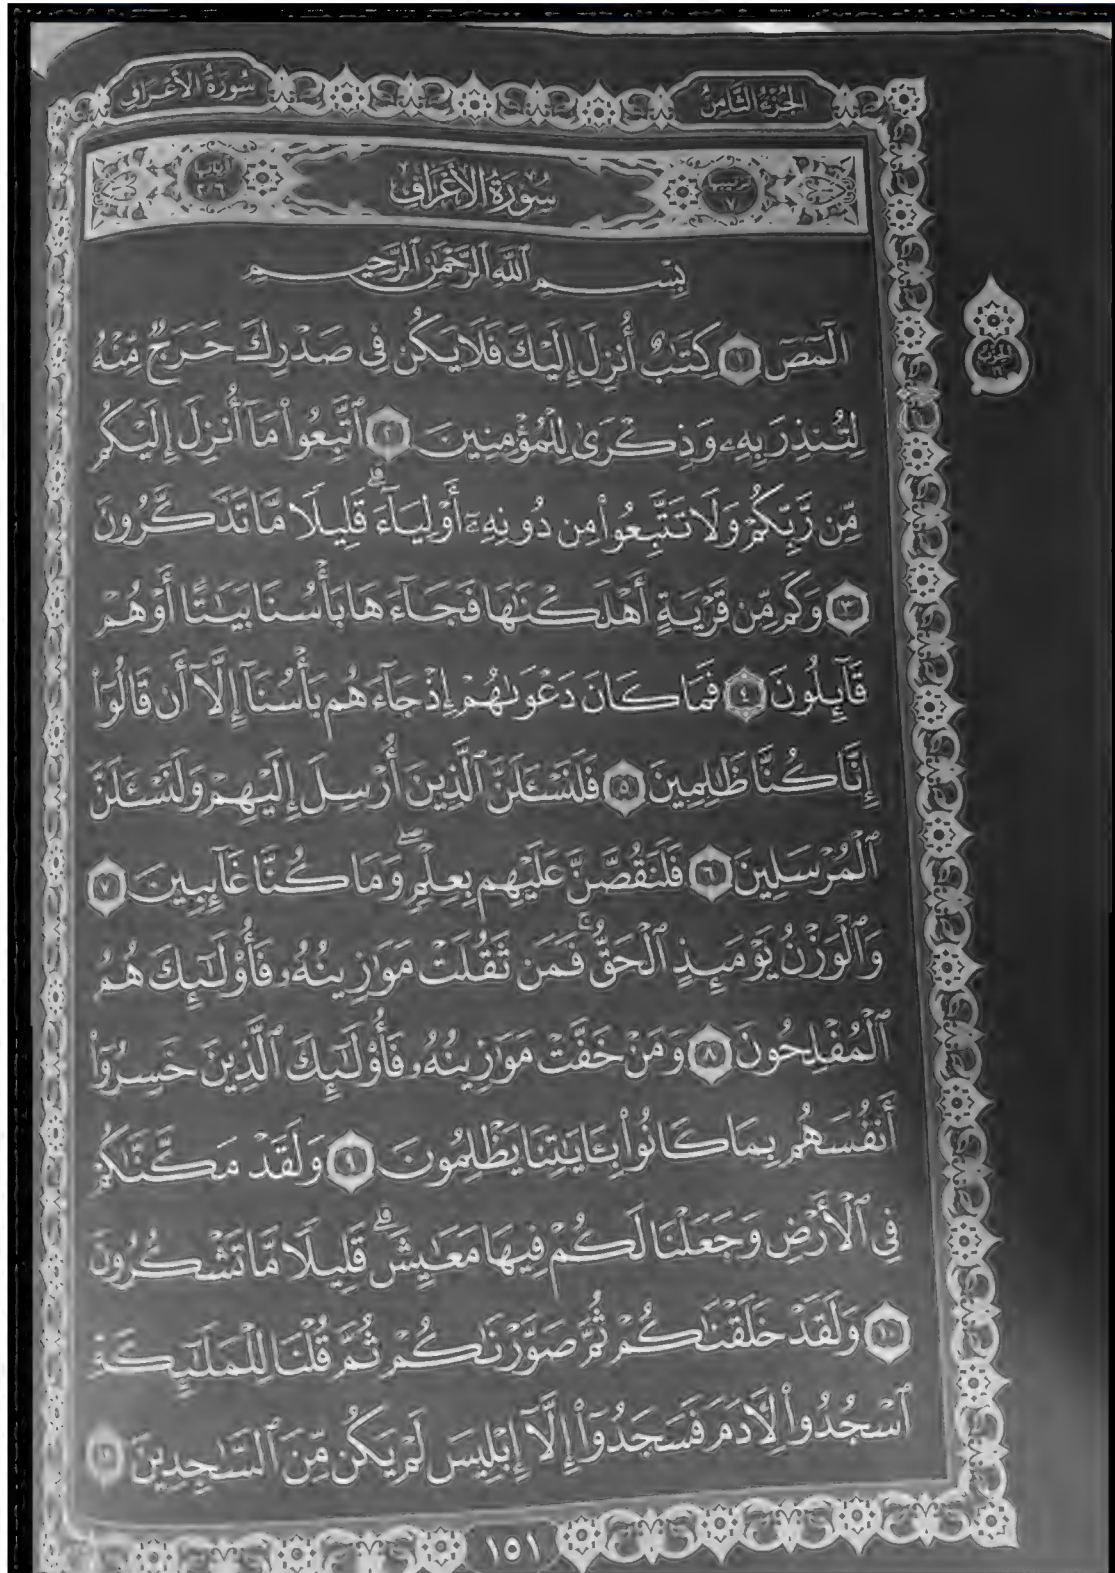 الجُزْءُ الثَّامِنُ
سُورَةُ الأَعْرَافِ
ترتيبها ٧
سُورَةُ الأَعْرَافِ
آياتها ٢٠٦
بِسْمِ ٱللَّهِ ٱلرَّحْمَٰنِ ٱلرَّحِيمِ
الٓمٓصٓ ١ كِتَٰبٌ أُنزِلَ إِلَيْكَ فَلَا يَكُن فِى صَدْرِكَ حَرَجٌ مِّنْهُ
لِتُنذِرَ بِهِۦ وَذِكْرَىٰ لِلْمُؤْمِنِينَ ٢ ٱتَّبِعُوا۟ مَآ أُنزِلَ إِلَيْكُم
مِّن رَّبِّكُمْ وَلَا تَتَّبِعُوا۟ مِن دُونِهِۦٓ أَوْلِيَآءَ ۗ قَلِيلًا مَّا تَذَكَّرُونَ
٣ وَكَم مِّن قَرْيَةٍ أَهْلَكْنَٰهَا فَجَآءَهَا بَأْسُنَا بَيَٰتًا أَوْ هُمْ
قَآئِلُونَ ٤ فَمَا كَانَ دَعْوَىٰهُمْ إِذْ جَآءَهُم بَأْسُنَآ إِلَّآ أَن قَالُوٓا۟
إِنَّا كُنَّا ظَٰلِمِينَ ٥ فَلَنَسْـَٔلَنَّ ٱلَّذِينَ أُرْسِلَ إِلَيْهِمْ وَلَنَسْـَٔلَنَّ
ٱلْمُرْسَلِينَ ٦ فَلَنَقُصَّنَّ عَلَيْهِم بِعِلْمٍ ۖ وَمَا كُنَّا غَآئِبِينَ ٧
وَٱلْوَزْنُ يَوْمَئِذٍ ٱلْحَقُّ ۚ فَمَن ثَقُلَتْ مَوَٰزِينُهُۥ فَأُو۟لَٰٓئِكَ هُمُ
ٱلْمُفْلِحُونَ ٨ وَمَنْ خَفَّتْ مَوَٰزِينُهُۥ فَأُو۟لَٰٓئِكَ ٱلَّذِينَ خَسِرُوٓا۟
أَنفُسَهُم بِمَا كَانُوا۟ بِـَٔايَٰتِنَا يَظْلِمُونَ ٩ وَلَقَدْ مَكَّنَّٰكُمْ
فِى ٱلْأَرْضِ وَجَعَلْنَا لَكُمْ فِيهَا مَعَٰيِشَ ۗ قَلِيلًا مَّا تَشْكُرُونَ
١٠ وَلَقَدْ خَلَقْنَٰكُمْ ثُمَّ صَوَّرْنَٰكُمْ ثُمَّ قُلْنَا لِلْمَلَٰٓئِكَةِ
ٱسْجُدُوا۟ لِـَٔادَمَ فَسَجَدُوٓا۟ إِلَّآ إِبْلِيسَ لَمْ يَكُن مِّنَ ٱلسَّٰجِدِينَ ١١
الحزب
١٥١